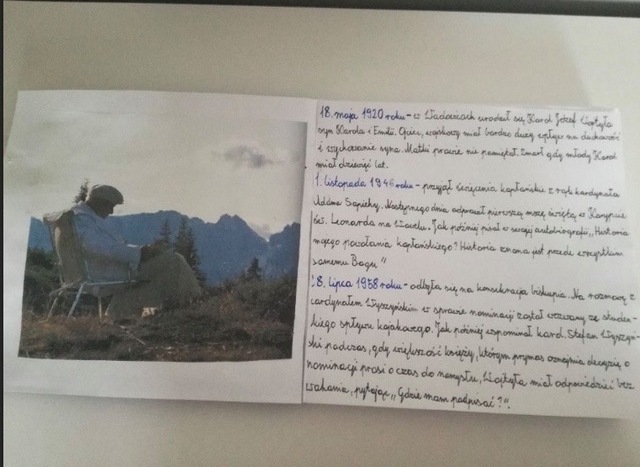 18. maja 1920 roku - w Wadowicach urodził się Karol Józef Wojtyła
syn Karola i Emilii. Ojciec, wojskowy miał bardzo duży wpływ na duchowość
i wychowanie syna. Matki prawie nie pamiętał. Zmarł gdy młody Karol
miał dziewięć lat.
1. listopada 1946 roku - przyjął święcenia kapłańskie z rąk kardynała
Adama Sapiehy. Następnego dnia odprawił pierwszą mszę świętą w Krypcie
św. Leonarda na Wawelu. Jak później pisał w swojej autobiografii „Historia
mojego powołania kapłańskiego? Historia znana jest przede wszystkim
samemu Bogu"
28. lipca 1958 roku - odbyła się na konsekracja biskupia. Na rozmowę z
kardynałem Wyszyńskim w sprawie nominacji został wezwany ze studen-
kiego spływu kajakowego. Jak później wspominał kard. Stefan Wyszyń-
ski podczas, gdy większość księży, którym prymas oznajmia decyzję o
nominacji prosi o czas do namysłu, Wojtyła miał odpowiedzieć bez
wahania, pytając „Gdzie mam podpisać?".